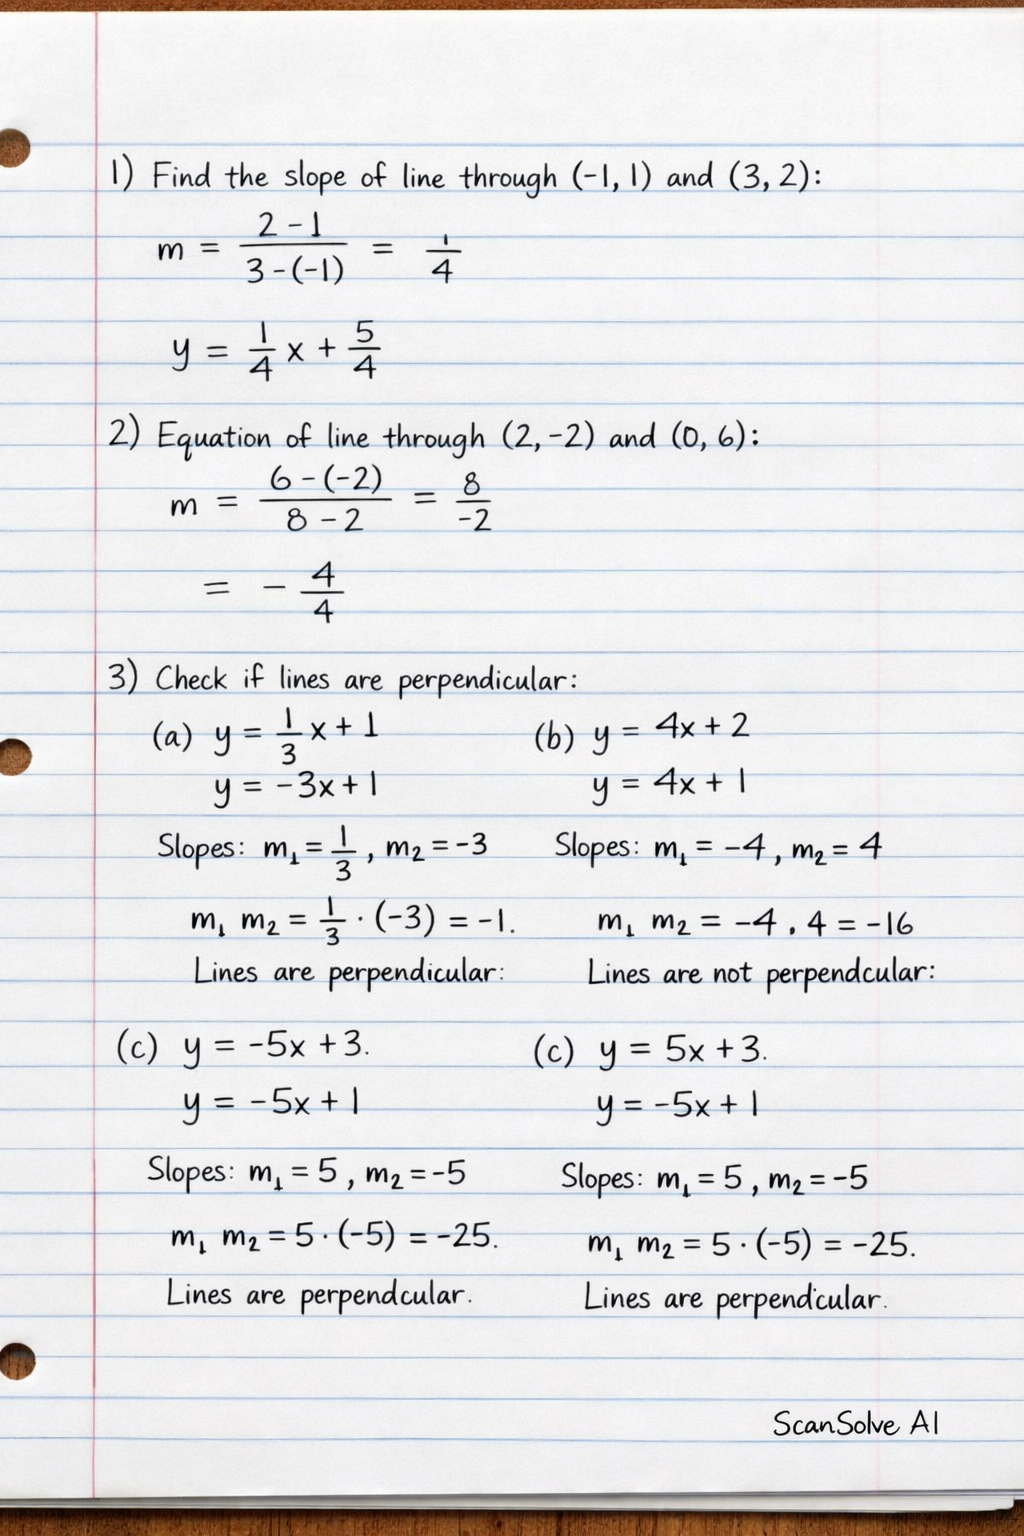 1) Find the slope of line through (-1, 1) and (3, 2):
m = (2 - 1)/(3 - (-1)) = 1/4
y = 1/4 x + 5/4
2) Equation of line through (2, -2) and (0, 6):
m = (6 - (-2))/(8 - 2) = 8/-2
= - 4/4
3) Check if lines are perpendicular:
(a) y = 1/3 x + 1
y = -3x + 1
Slopes: m₁ = 1/3, m₂ = -3
m₁ m₂ = 1/3 · (-3) = -1.
Lines are perpendicular:
(b) y = 4x + 2
y = 4x + 1
Slopes: m₁ = -4, m₂ = 4
m₁ m₂ = -4 . 4 = -16
Lines are not perpendcular:
(c) y = -5x + 3.
y = -5x + 1
Slopes: m₁ = 5, m₂ = -5
m₁ m₂ = 5 · (-5) = -25.
Lines are perpendcular.
(c) y = 5x + 3.
y = -5x + 1
Slopes: m₁ = 5, m₂ = -5
m₁ m₂ = 5 · (-5) = -25.
Lines are perpendicular.
ScanSolve AI